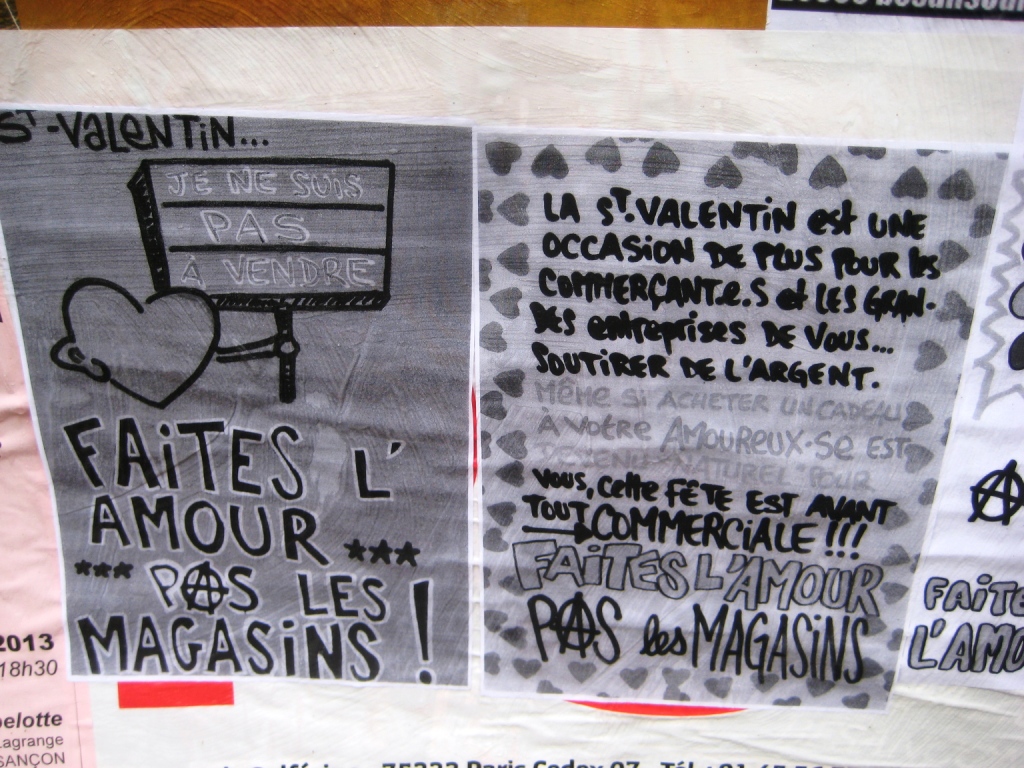 ST-VALENTIN...
JE NE SUIS
PAS
À VENDRE
FAITES L'
AMOUR ***
*** PAS LES
MAGASINS !
LA ST.VALENTIN est UNE
OCCASION DE PLUS POUR les
COMMERÇANT.e.S et LES GRAN-
DES entreprises DE VOUS...
SOUTIRER DE L'ARGENT.
MÊME SI ACHETER UN CADEAU
À VOTRE AMOUREUX-SE EST
DEVENU "NATUREL" POUR
VOUS, cette FÊTE EST AVANT
TOUT COMMERCIALE !!!
FAITES L'AMOUR
PAS les MAGASINS
FAITE
L'AMO
2013
18h30
belotte
Lagrange
SANÇON
75332 Paris Cedex 07 - Tél : 01